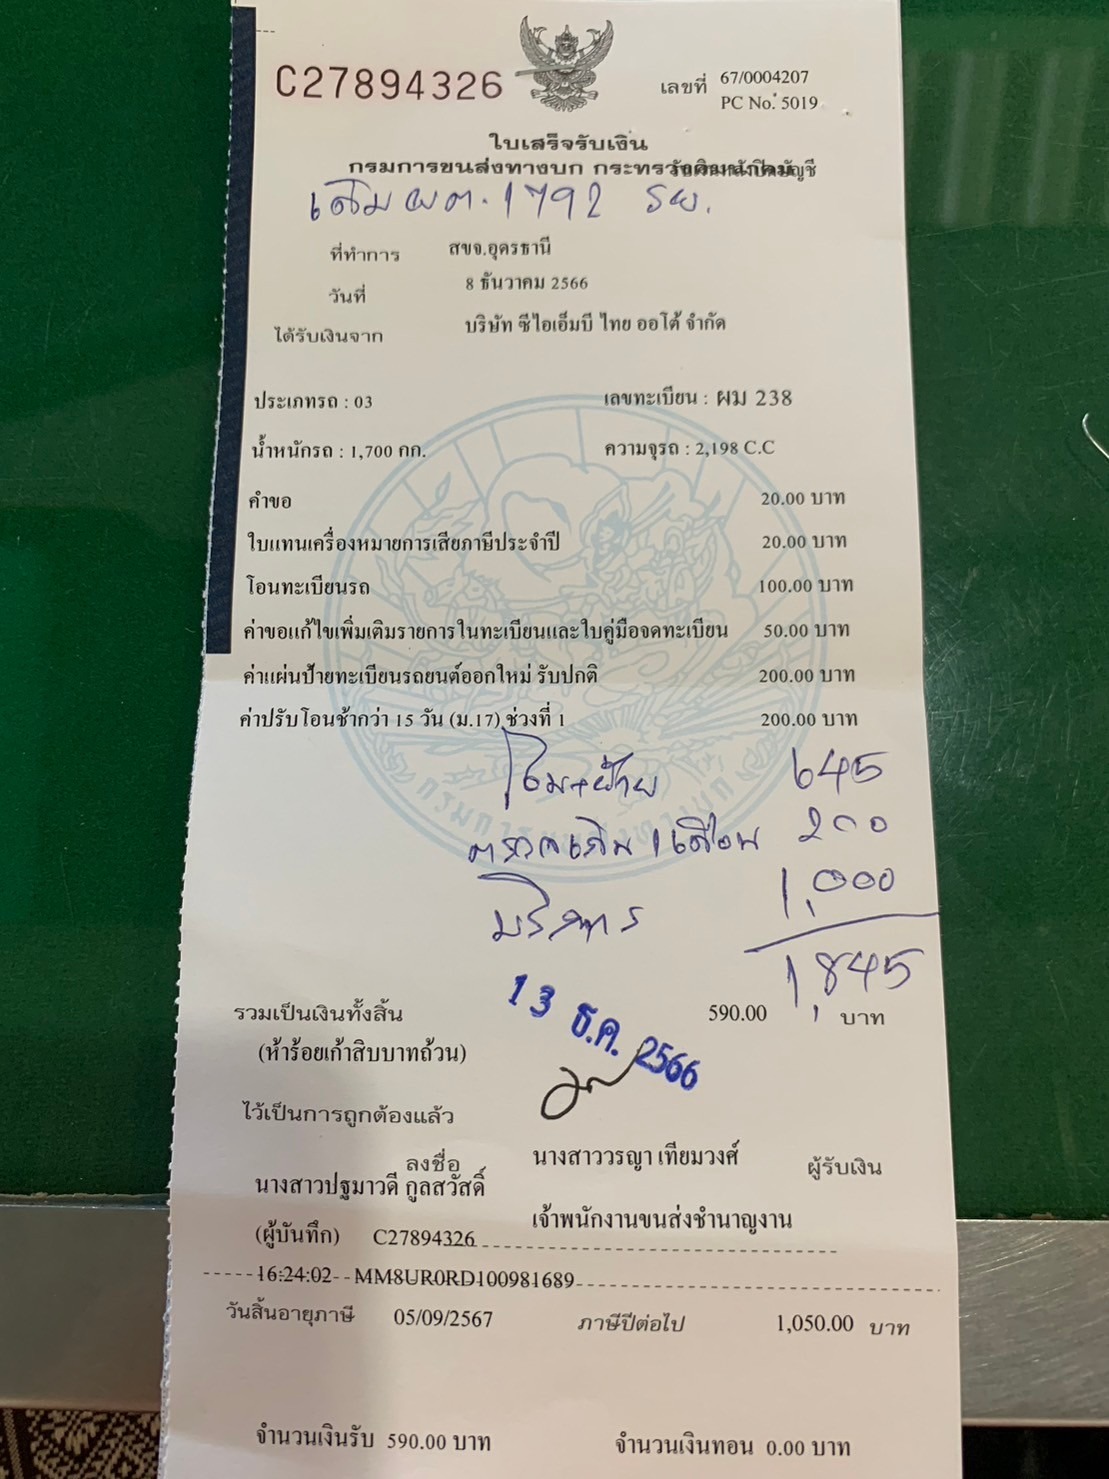 C27894326
เลขที่ 67/0004207
PC No. 5019
ใบเสร็จรับเงิน
กรมการขนส่งทางบก กระทรวงคมนาคม
เดิม ผต. 1792 รย.
ที่ทำการ สขจ.อุดรธานี
วันที่ 8 ธันวาคม 2566
ได้รับเงินจาก บริษัท ซีไอเอ็มบี ไทย ออโต้ จำกัด
ประเภทรถ : 03 เลขทะเบียน : ผม 238
น้ำหนักรถ : 1,700 กก. ความจุรถ : 2,198 C.C
คำขอ 20.00 บาท
ใบแทนเครื่องหมายการเสียภาษีประจำปี 20.00 บาท
โอนทะเบียนรถ 100.00 บาท
ค่าขอแก้ไขเพิ่มเติมรายการในทะเบียนและใบคู่มือจดทะเบียน 50.00 บาท
ค่าแผ่นป้ายทะเบียนรถยนต์ออกใหม่ รับปกติ 200.00 บาท
ค่าปรับโอนช้ากว่า 15 วัน (ม.17) ช่วงที่ 1 200.00 บาท
645
1เดือน 200
บริการ 1,000
1,845
กรมการขนส่งทางบก
13 ธ.ค. 2566
รวมเป็นเงินทั้งสิ้น 590.00 บาท
(ห้าร้อยเก้าสิบบาทถ้วน)
ไว้เป็นการถูกต้องแล้ว
ลงชื่อ นางสาววรญา เทียมวงศ์ ผู้รับเงิน
นางสาวปฐมาวดี กูลสวัสดิ์
เจ้าพนักงานขนส่งชำนาญงาน
(ผู้บันทึก) C27894326
16:24:02 MM8UR0RD100981689
วันสิ้นอายุภาษี 05/09/2567 ภาษีปีต่อไป 1,050.00 บาท
จำนวนเงินรับ 590.00 บาท จำนวนเงินทอน 0.00 บาท